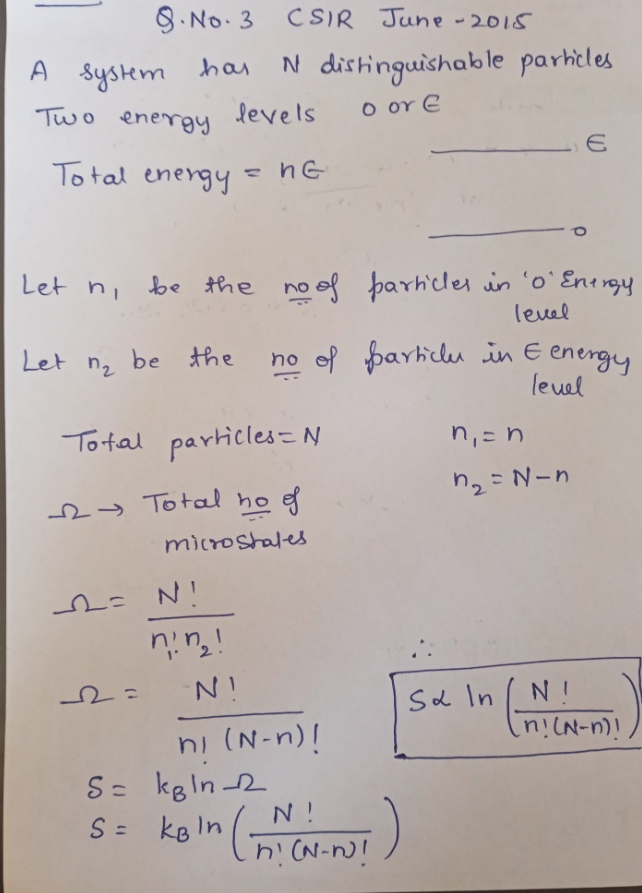 Q.No.3 CSIR June-2015
A system has N distinguishable particles
Two energy levels 0 or ∈
∈
Total energy = n∈
0
Let n₁ be the no of particles in '0' Energy
level
Let n₂ be the no of particles in ∈ energy
level
Total particles = N
n₁ = n
n₂ = N-n
Ω → Total no of
microstates
Ω = N! / n₁! n₂!
Ω = N! / n! (N-n)!
∴
S ∝ ln (N! / n!(N-n)!)
S = k_B ln Ω
S = k_B ln (N! / n! (N-n)!)